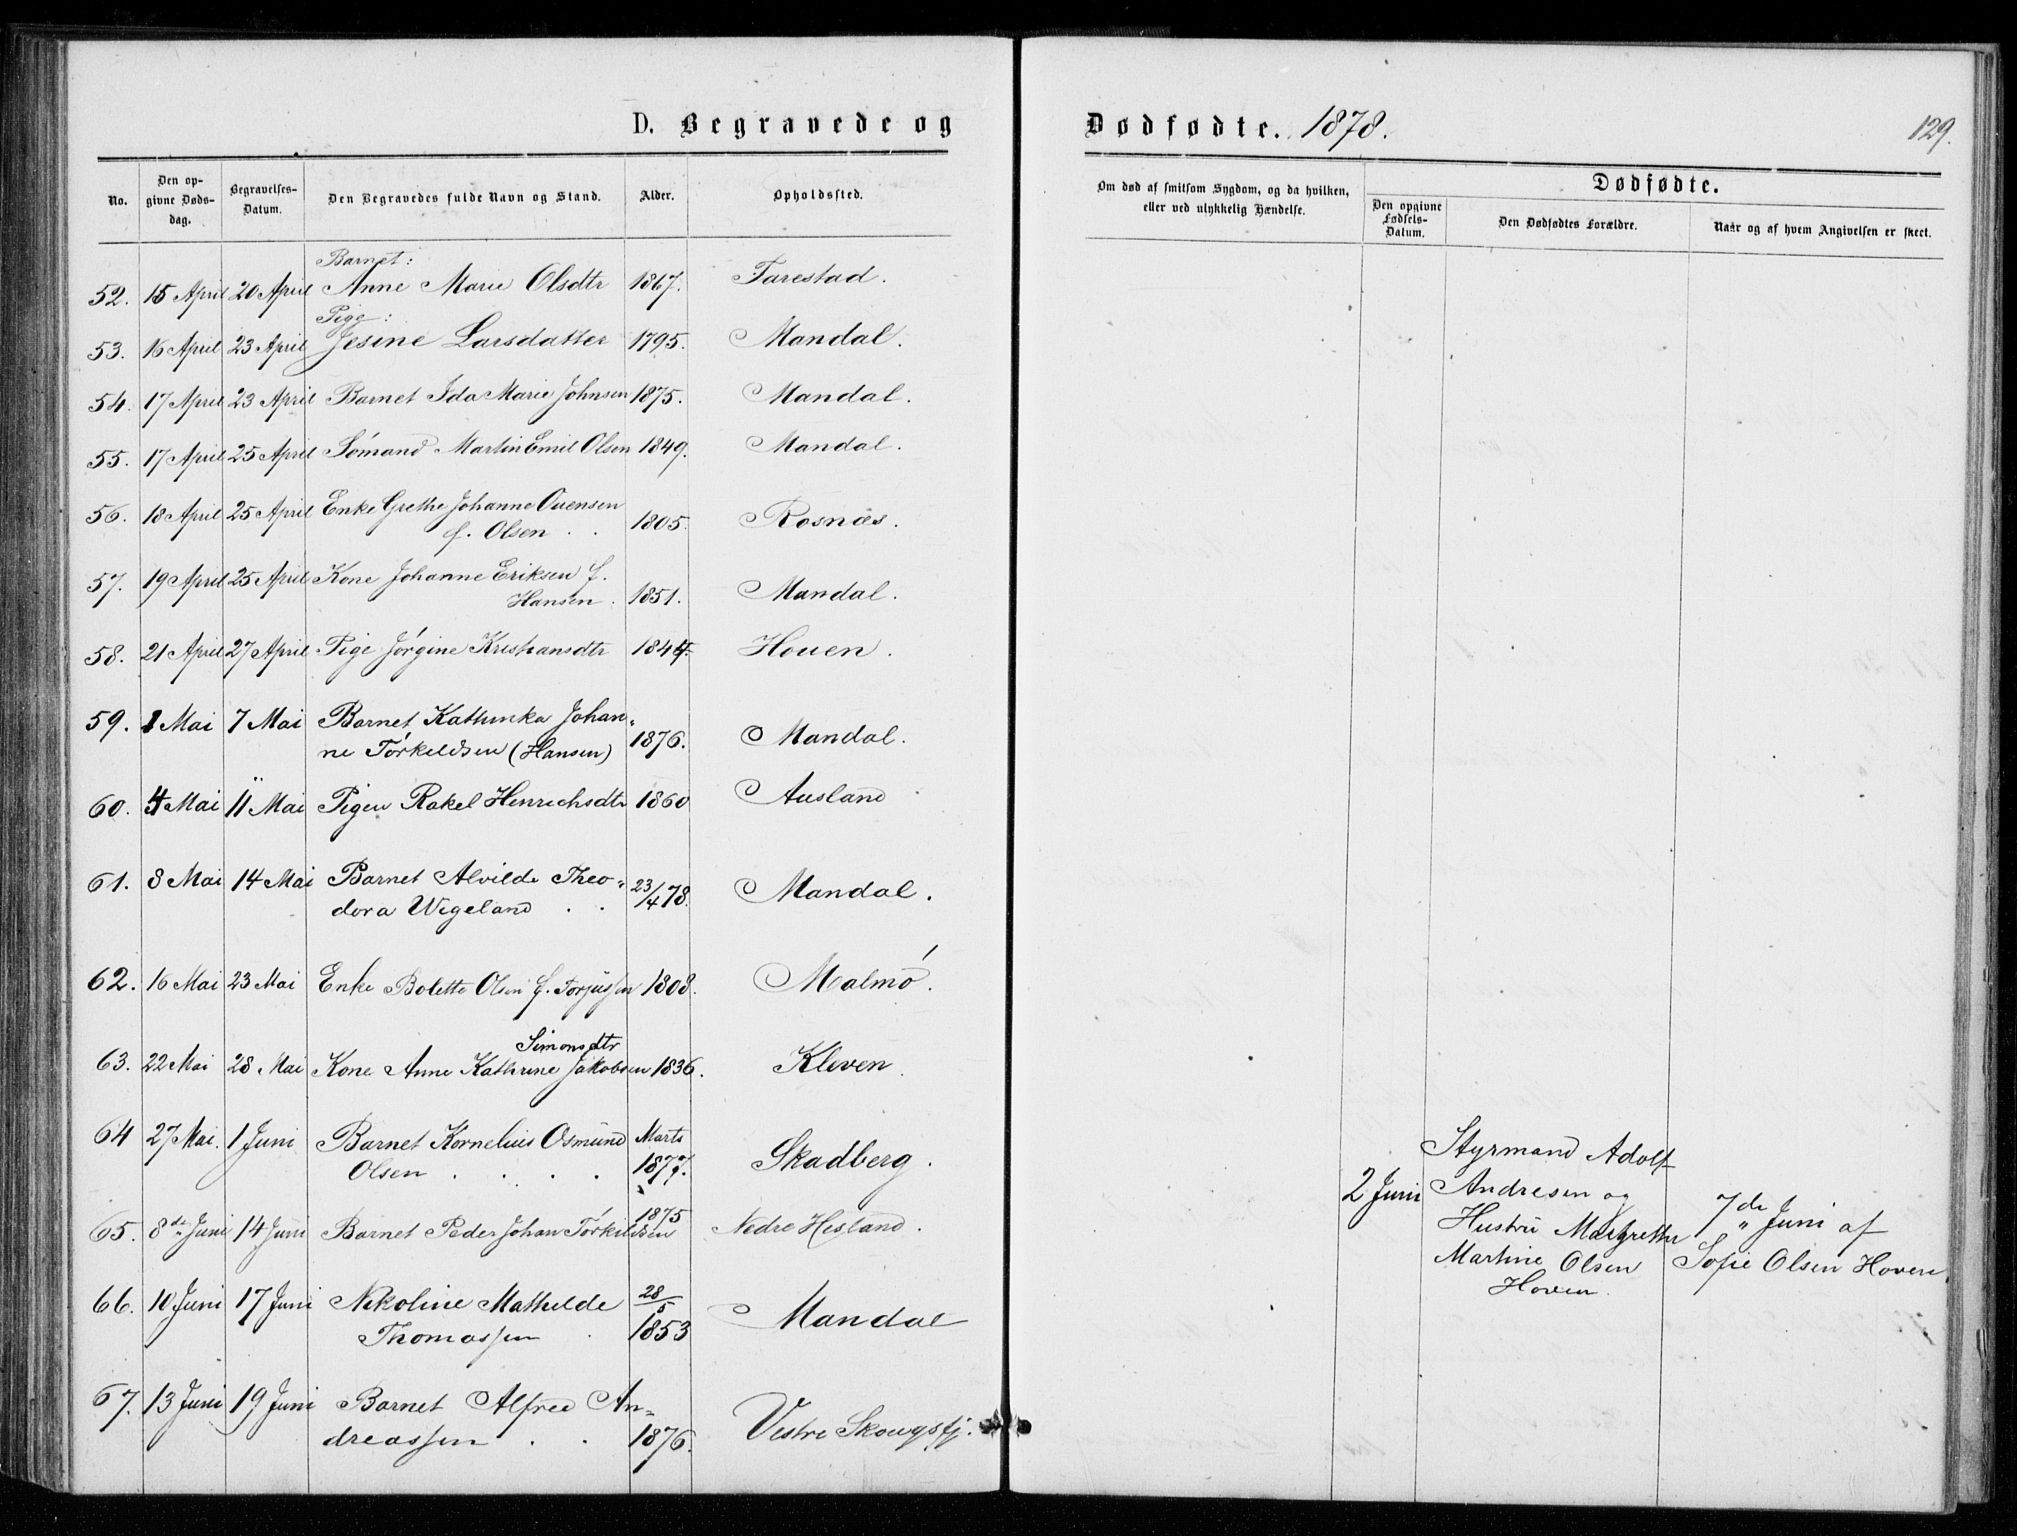 D. Begravede og
Dødfødte. 1878.
129.
No.
Den op-
givne Døds-
dag.
Begravelses-
Datum.
Den Begravedes fulde Navn og Stand.
Alder.
Opholdssted.
Om død af smitsom Sygdom, og da hvilken,
eller ved ulykkelig Hændelse.
Dødfødte.
Den opgivne
Fødsels-
Datum.
Den Dødfødtes Forældre.
Naar og af hvem Angivelsen er skeet.
Barnet:
52. 15 April 20 April Anne Marie Olsdtr 1867. Tarestad.
Pige:
53. 16 April 23 April Jesine Larsdatter 1795. Mandal.
54. 17 April 23 April Barnet Ida Marie Johnsen 1875. Mandal.
55. 17 April 25 April Sømand Martin Emil Olsen 1849. Mandal.
56. 18 April 25 April Enke Grethe Johanne Ouensen
f. Olsen . . 1805. Rosnæs.
57. 19 April 25 April Kone Johanne Eriksen f.
Hansen. 1851. Mandal.
58. 21 April 27 April Pige Jørgine Kristiansdtr 1844. Houen.
59. 1 Mai 7 Mai Barnet Kathinka Johan-
ne Tørkeldsen (Hansen) 1876. Mandal.
60. 4 Mai 11 Mai Pigen Rakel Henrichsdtr 1860 Ausland
61. 8 Mai 14 Mai Barnet Alvilde Theo-
dora Wigeland . . 23/4 78. Mandal.
62. 16 Mai 23 Mai Enke Bolette Olsen f. Torjussen 1808. Malmø.
Simonsdtr
63. 22 Mai 28 Mai Kone Anne Kathrine Jakobsen 1836. Kleven.
64 27 Mai. 1 Juni Barnet Kornelius Osmund
Olsen . . . . Marts 1877. Skadberg.
65. 8de Juni 14 Juni Barnet Peder Johan Tørkildsen 1875 Nedre Hesland.
66. 10 Juni 17 Juni Nikoline Mathilde
Thomassen . 28/5 1853 Mandal
67. 13 Juni 19 Juni Barnet Alfred An-
dreassen . . 1876. Vestre Skougsfj.
2 Juni
Styrmand Adolf
Andresen og
Hustru Margrethe
Martine Olsen
Hoven.
7de Juni af
Sofie Olsen Hoven.